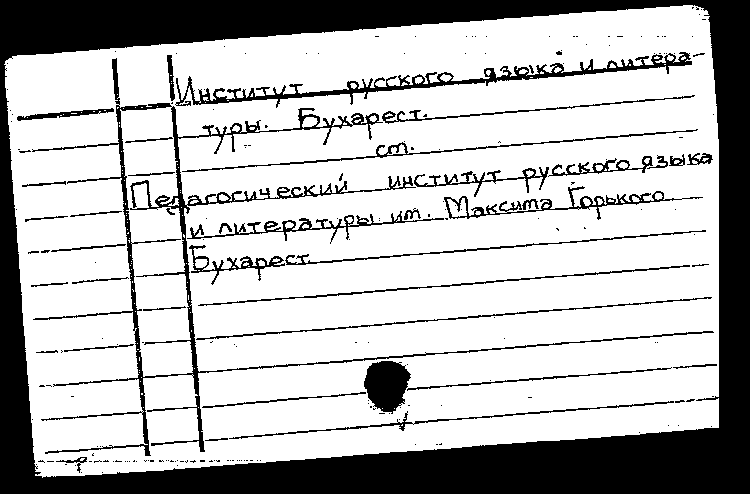 Институт русского языка и литера-
туры. Бухарест.
см.
Педагогический институт русского языка
и литературы им. Максима Горького.
Бухарест.